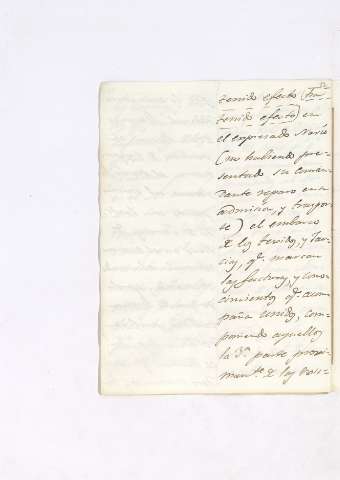 tenido efecto (Fra^s
tenido efecto) en
el expresado Navio
(no habiendo pre-
sentado su Coman-
dante reparo en su
admision, y transpor-
te) el embarco
de los texidos, y
q.^e marcan
las facturas, y cono-
cimientos q.^e acom-
paña unidos, com-
poniendo aquellos
la 3.^a parte proxi-
mam.^te de los